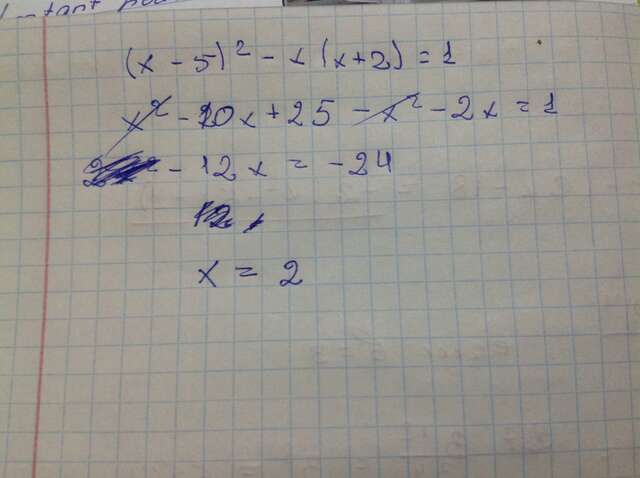 (x - 5)² - x(x+2) = 1
x² - 10x + 25 - x² - 2x = 1
- 12x = -24
12
x = 2